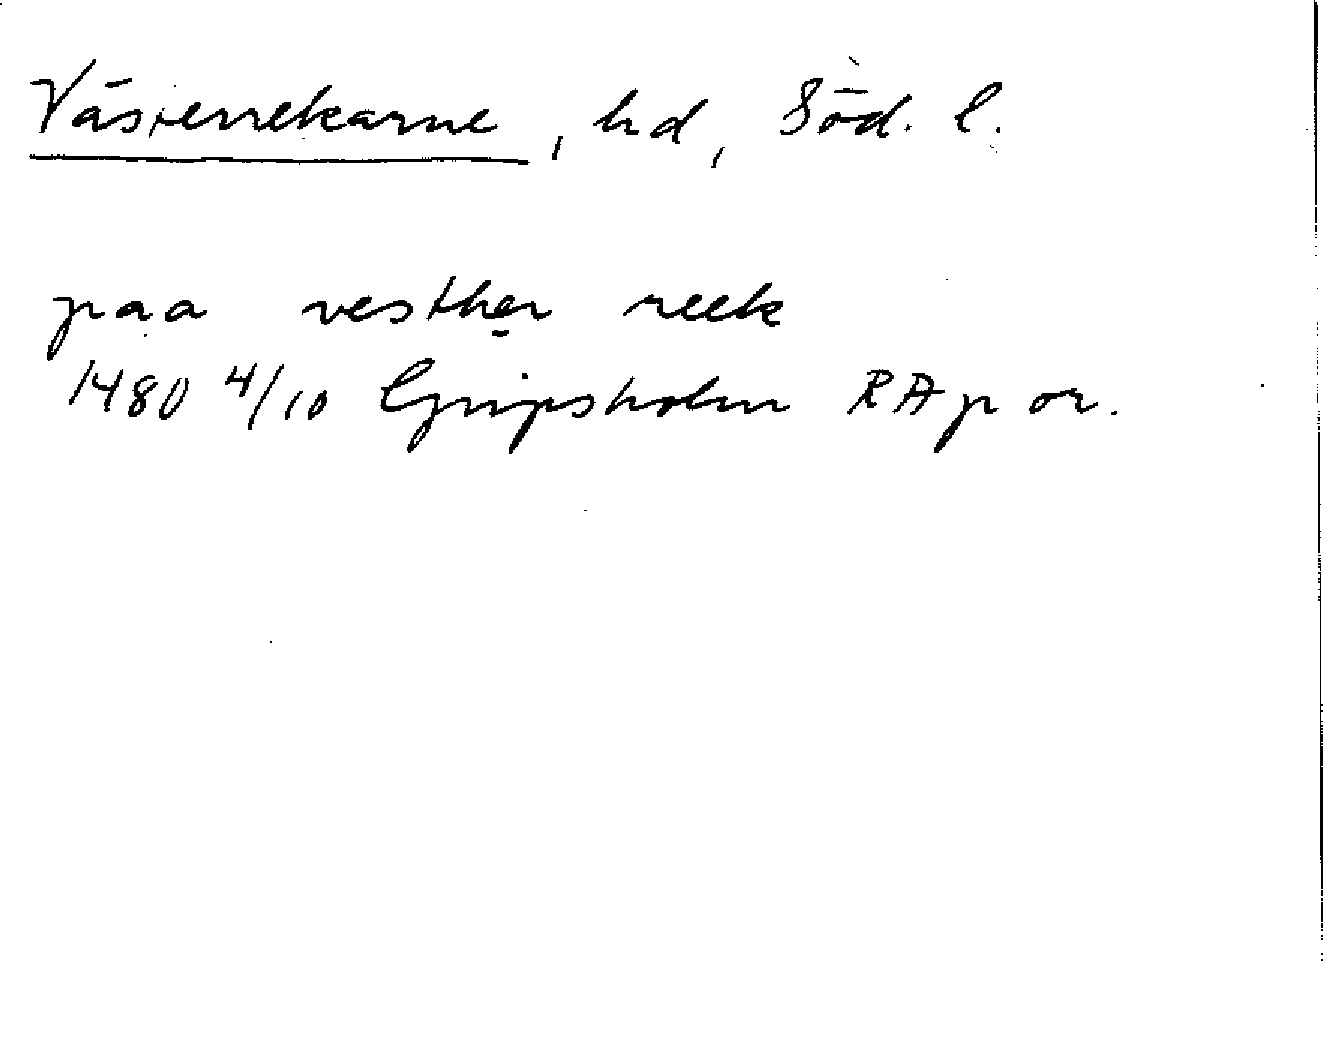 Västerrekarne, hd, Söd. l.
paa vesther reek
1480 4/10 Gripsholm RAp or.